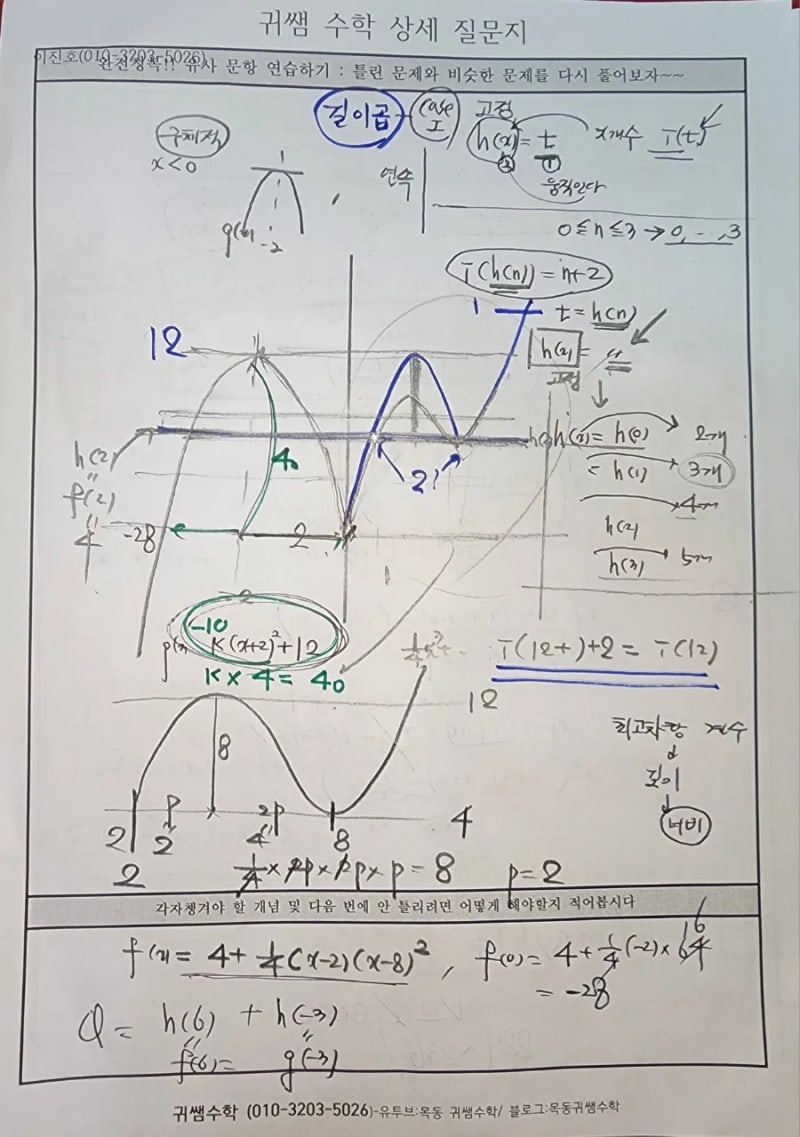 귀쌤 수학 상세 질문지
이진호(010-3203-5026)
완전정복!! 유사 문항 연습하기 : 틀린 문제와 비슷한 문제를 다시 풀어보자~~
구체적
x<0
g(x)
-2
연속
질이곱 - case I
고정
h(x) = t
② ①
x개수 T(t)
움직인다
0≤n≤3 → 0, …, 3
T(h(n)) = n+2
t = h(n)
h(x) =
고정
12
h(x) = h(0) 2개
= h(1) 3개
h(2) 4개
h(3) 5개
h(2)
"
f(2)
"
4
-28
40
2
2!
-2
1
-10
g(x) K(x+2)²+12
K×4 = 40
T(12+)+2 = T(12)
12
최고차항 계수
높이
너비
8
2 p 2p 8 4
2 4
2
¼×2p×2p×p = 8 p=2
각자챙겨야 할 개념 및 다음 번에 안 틀리려면 어떻게 해야할지 적어봅시다
f(x) = 4+¼(x-2)(x-8)² , f(0) = 4+¼(-2)×64
16
= -28
Q = h(6) + h(-3)
f(6)= g(-3)
귀쌤수학 (010-3203-5026)-유투브:목동 귀쌤수학/ 블로그:목동귀쌤수학